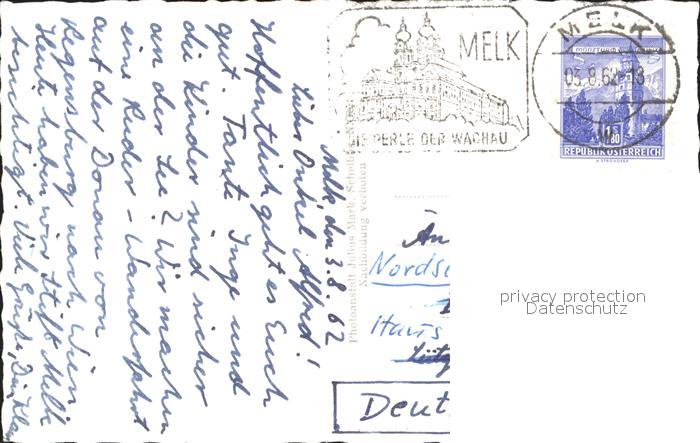 Melk, den 3.8.62
Lieber Onkel Alfred!
Hoffentlich geht es Euch
gut. Tante Inge und
die Kinder sind sicher
an der See? Wir machen
eine Ruder-Wanderfahrt
auf der Donau von
Regensburg nach Wien
Heut haben wir Stift Melk
besichtigt. Viele Grüße, Dein Klaus
MELK
DIE PERLE DER WACHAU
MELK
03.8.62-18
REPUBLIK ÖSTERREICH
Photoanstalt Julius Mark, Scheibbs, N.Ö.
Nachbildung Verboten
An
Nordse
Haus
Deut
privacy protection
Datenschutz